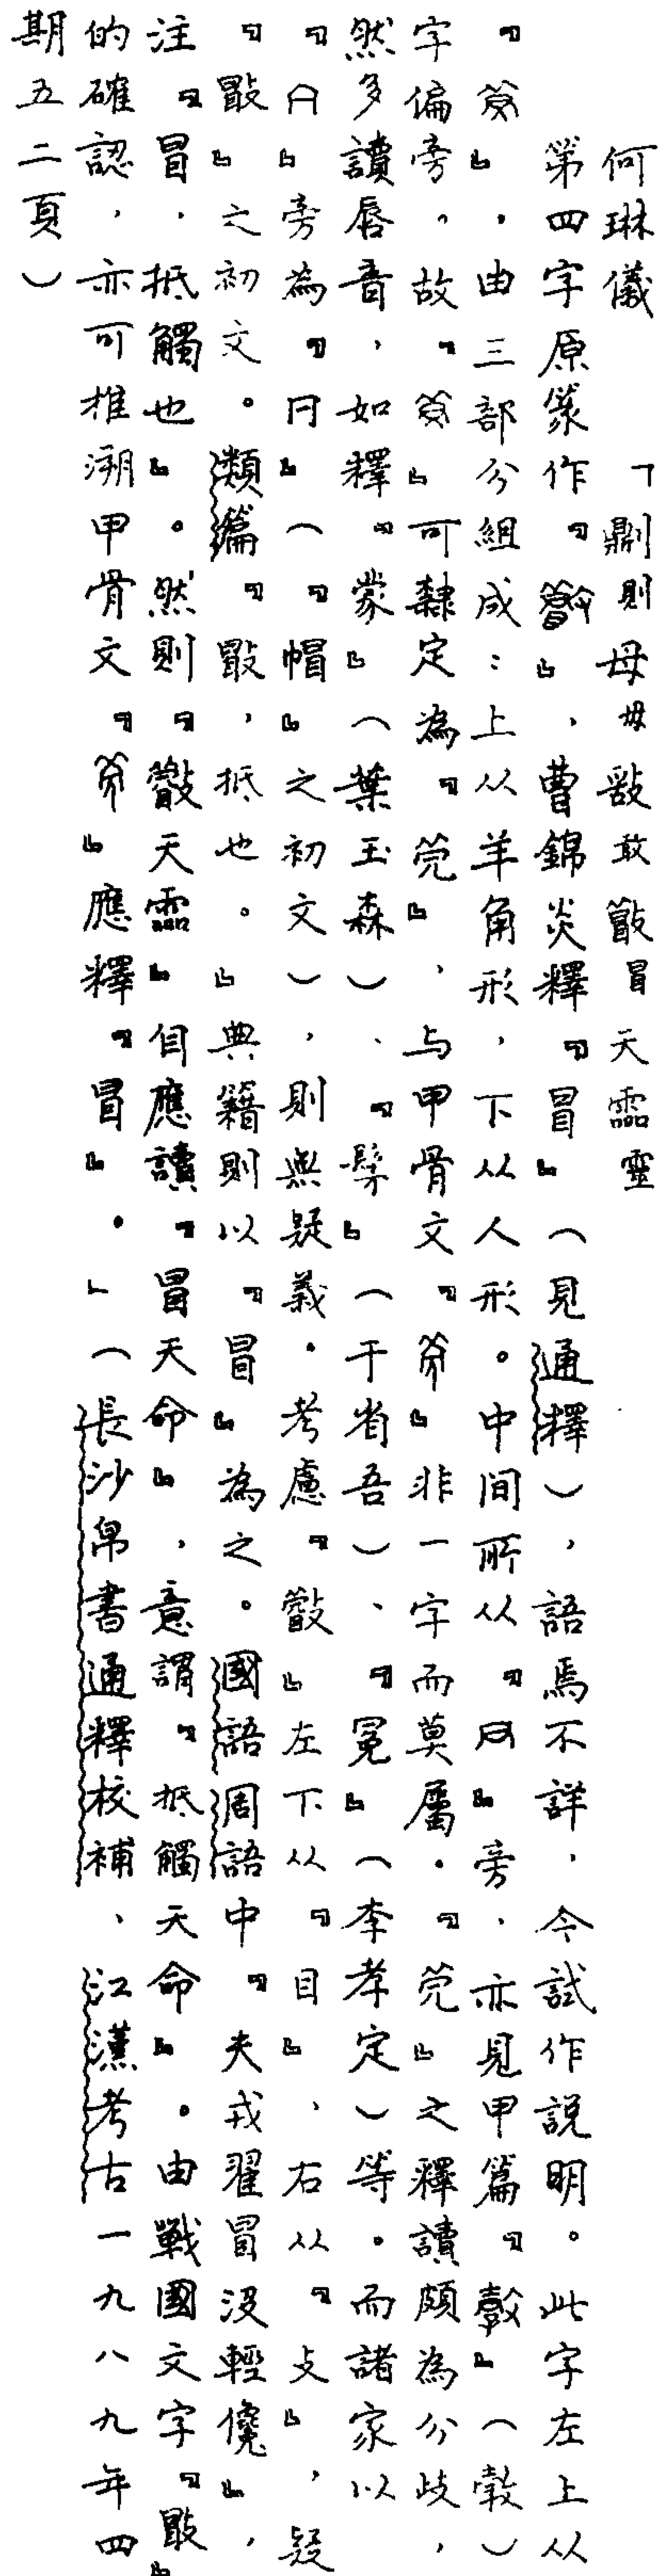 何琳儀　「鼎則毋毋敢敢冒天霝靈
第四字原篆作『』，曹錦炎釋『冒』（見通釋），語焉不詳，今試作説明。此字左上从
『』，由三部分組成：上从羊角形，下从人形。中间所从『』旁，亦見甲篇『』（㝅）
字偏旁。故『』可隸定為『』，与甲骨文『』非一字而莫屬。『』之釋讀頗為分歧，
然多讀唇音，如釋『蒙』（葉玉森）、『髳』（于省吾）、『冕』（李孝定）等。而諸家以
『』旁為『冃』（『帽』之初文），則無疑義。考慮『』左下从『目』，右从『攴』，疑
『』之初文。類篇『，抵也。』典籍則以『冒』為之。國語周語中『夫戎翟冒没輕儳』，
注『冒，抵觸也』。然則『天霝』自應讀『冒天命』，意謂『抵觸天命』。由戰國文字『』
的確認，亦可推溯甲骨文『』應釋『冒』。」（長沙帛書通釋校補、江漢考古一九八九年四
期五二頁）